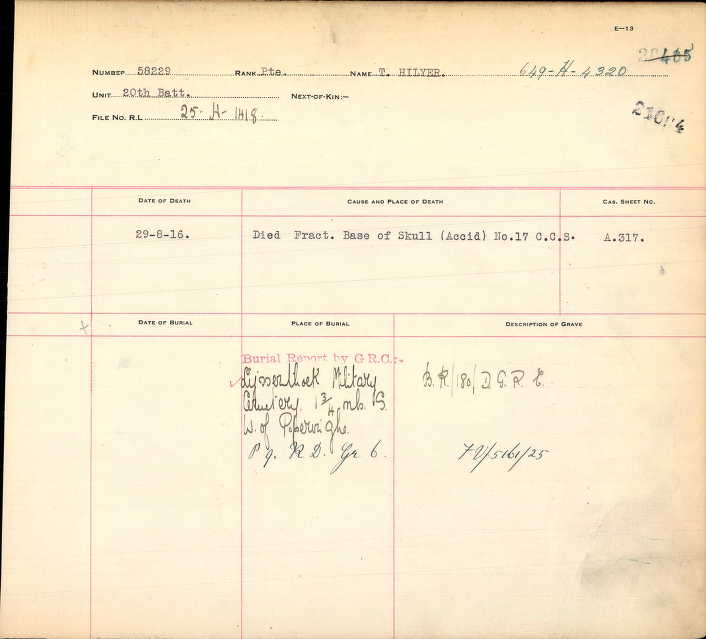 E—13
NUMBER 58229 RANK Pte. NAME T. HILYER. 649-H-4320
UNIT 20th Batt. NEXT-OF-KIN:—
FILE No. R.L. 25-H-1418.
DATE OF DEATH CAUSE AND PLACE OF DEATH CAS. SHEET NO.
29-8-16. Died Fract. Base of Skull (Accid) No.17 C.C.S. A.317.
DATE OF BURIAL PLACE OF BURIAL DESCRIPTION OF GRAVE
Burial Report by G R.C.:-
Lijssenthoek Military
Cemetery. 1 3/4 mls. S.
W. of Poperinghe.
B.R/180/D.G.R.E.
P 9. R D. Gr 6.